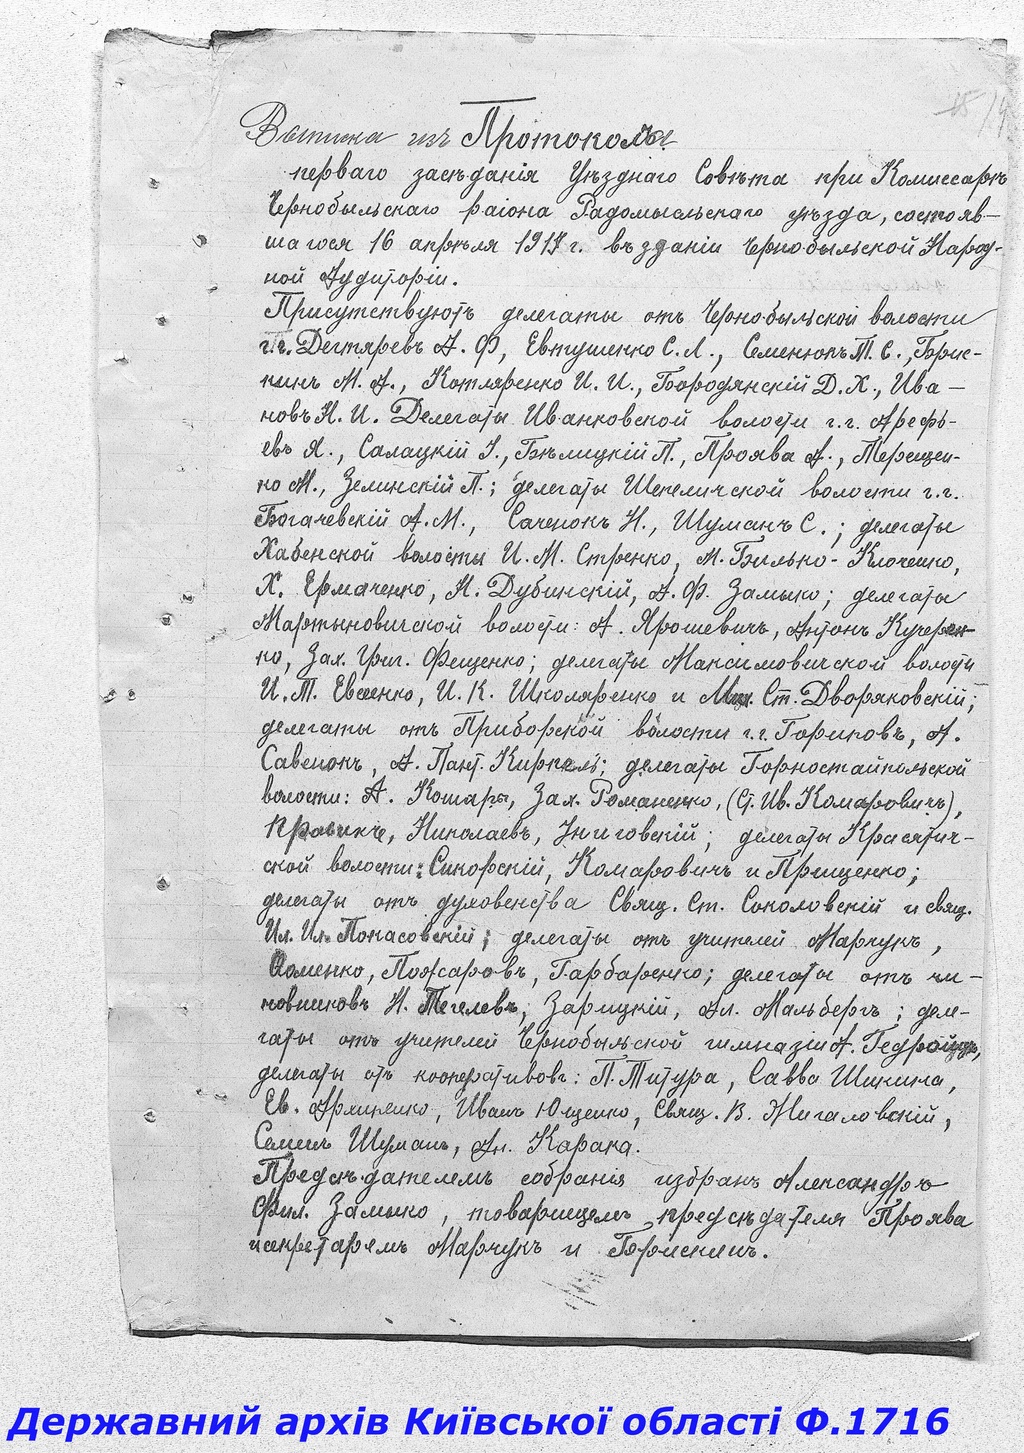 Выписка изъ Протокола
перваго засѣданія Уѣзднаго Совѣта при Комиссарѣ
Чернобыльскаго раіона Радомысльскаго уѣзда, состояв-
шагося 16 апрѣля 1917 г. въ зданіи Чернобыльской Народ-
ной Аудиторіи.
Присутствуютъ делегаты отъ Чернобыльской волости
г.г. Дегтяревъ А. Ф, Евтушенко С. Л., Семенюкъ Т. С.,
М. А., Котляренко И. И., Бородянскій Д. Х., Ива-
новъ Н. И. Делегаты Иванковской волости г.г. Арефь-
евъ Я., Салацкій І., Бѣлицкій П., Проява А., Терещен-
ко М., Зелинскій П.; делегаты Шепеличской волости г.г.
Богачевскій А. М., Саченокъ Н., Шуманъ С.; делегаты
Хабенской волости И. М. Стренко, М. Билько-Клоченко,
Х. Ермаченко, Н. Дубинскій, А. Ф. Замыко; делегаты
Мартыновичской волости: А. Ярошевичъ, Антонъ Кучерен-
ко, Зах. Григ. Фещенко; делегаты Максимовичской волости
И. Т. Евсеенко, И. К. Школяренко и Мих. Ст. Дворяковскій;
делегаты отъ Приборской волости г.г. Гориковъ, А.
Савенокъ, А. Пант. делегаты Горностайпольской
волости: А. Кошары, Зах. Романенко, (Ст. Ив. Комаровичъ),
Николаевъ, делегаты Красятич-
ской волости: Сикорскій, Комаровичъ и Прищенко;
делегаты отъ духовенства Свящ. Ст. Соколовскій и свящ.
Ил. Ил. Покасовскій; делегаты отъ учителей Марчукъ,
Фоменко, Пожаровъ, Гарбаренко; делегаты отъ чи-
новниковъ Н. Зарицкій, Ал. Мальбергъ; деле-
гаты отъ учителей Чернобыльской гимназіи А. Гедройцъ,
делегаты отъ кооперативовъ: П. Титура, Савва Шинина,
Ев. Иванъ Ющенко, Свящ. В. Жигаловскій,
Семенъ Шуманъ, Ан. Карака.
Предсѣдателемъ собранія избранъ Александръ
Фил. Замыко, товарищемъ предсѣдателя Проява
и секретаремъ Марчукъ и
Державний архів Київської області Ф.1716